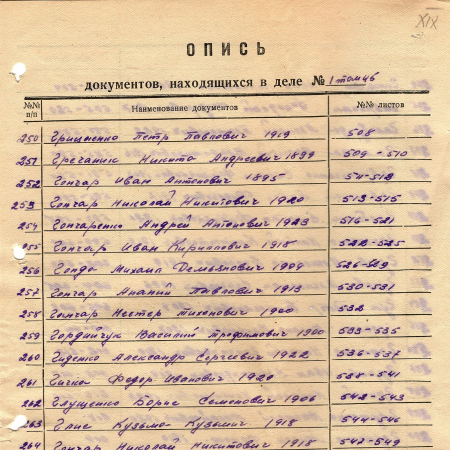 XIX
ОПИСЬ
документов, находящихся в деле № 1 том 46
№№ п/п Наименование документов №№ листов
250 Грищенко Петр Павлович 1919 508
251 Гречаник Никита Андреевич 1899 509-510
252 Гончар Иван Антонович 1895 511-512
253 Гончар Николай Никитович 1920 513-515
254 Гончаренко Андрей Антонович 1923 516-521
255 Гончар Иван Кириллович 1918 522-525
256 Гонда Михаил Демьянович 1909 526-529
257 Гончар Ананий Павлович 1913 530-531
258 Гончар Нестер Тихонович 1900 532
259 Гордийчук Василий Трофимович 1900 533-535
260 Гиденко Александр Сергеевич 1922 536-537
261 Гичка Федор Иванович 1920 538-541
262 Глущенко Борис Семенович 1906 542-543
263 Глис Кузьма Кузьмич 1918 544-546
264 Гончар Николай Никитович 1918 547-549